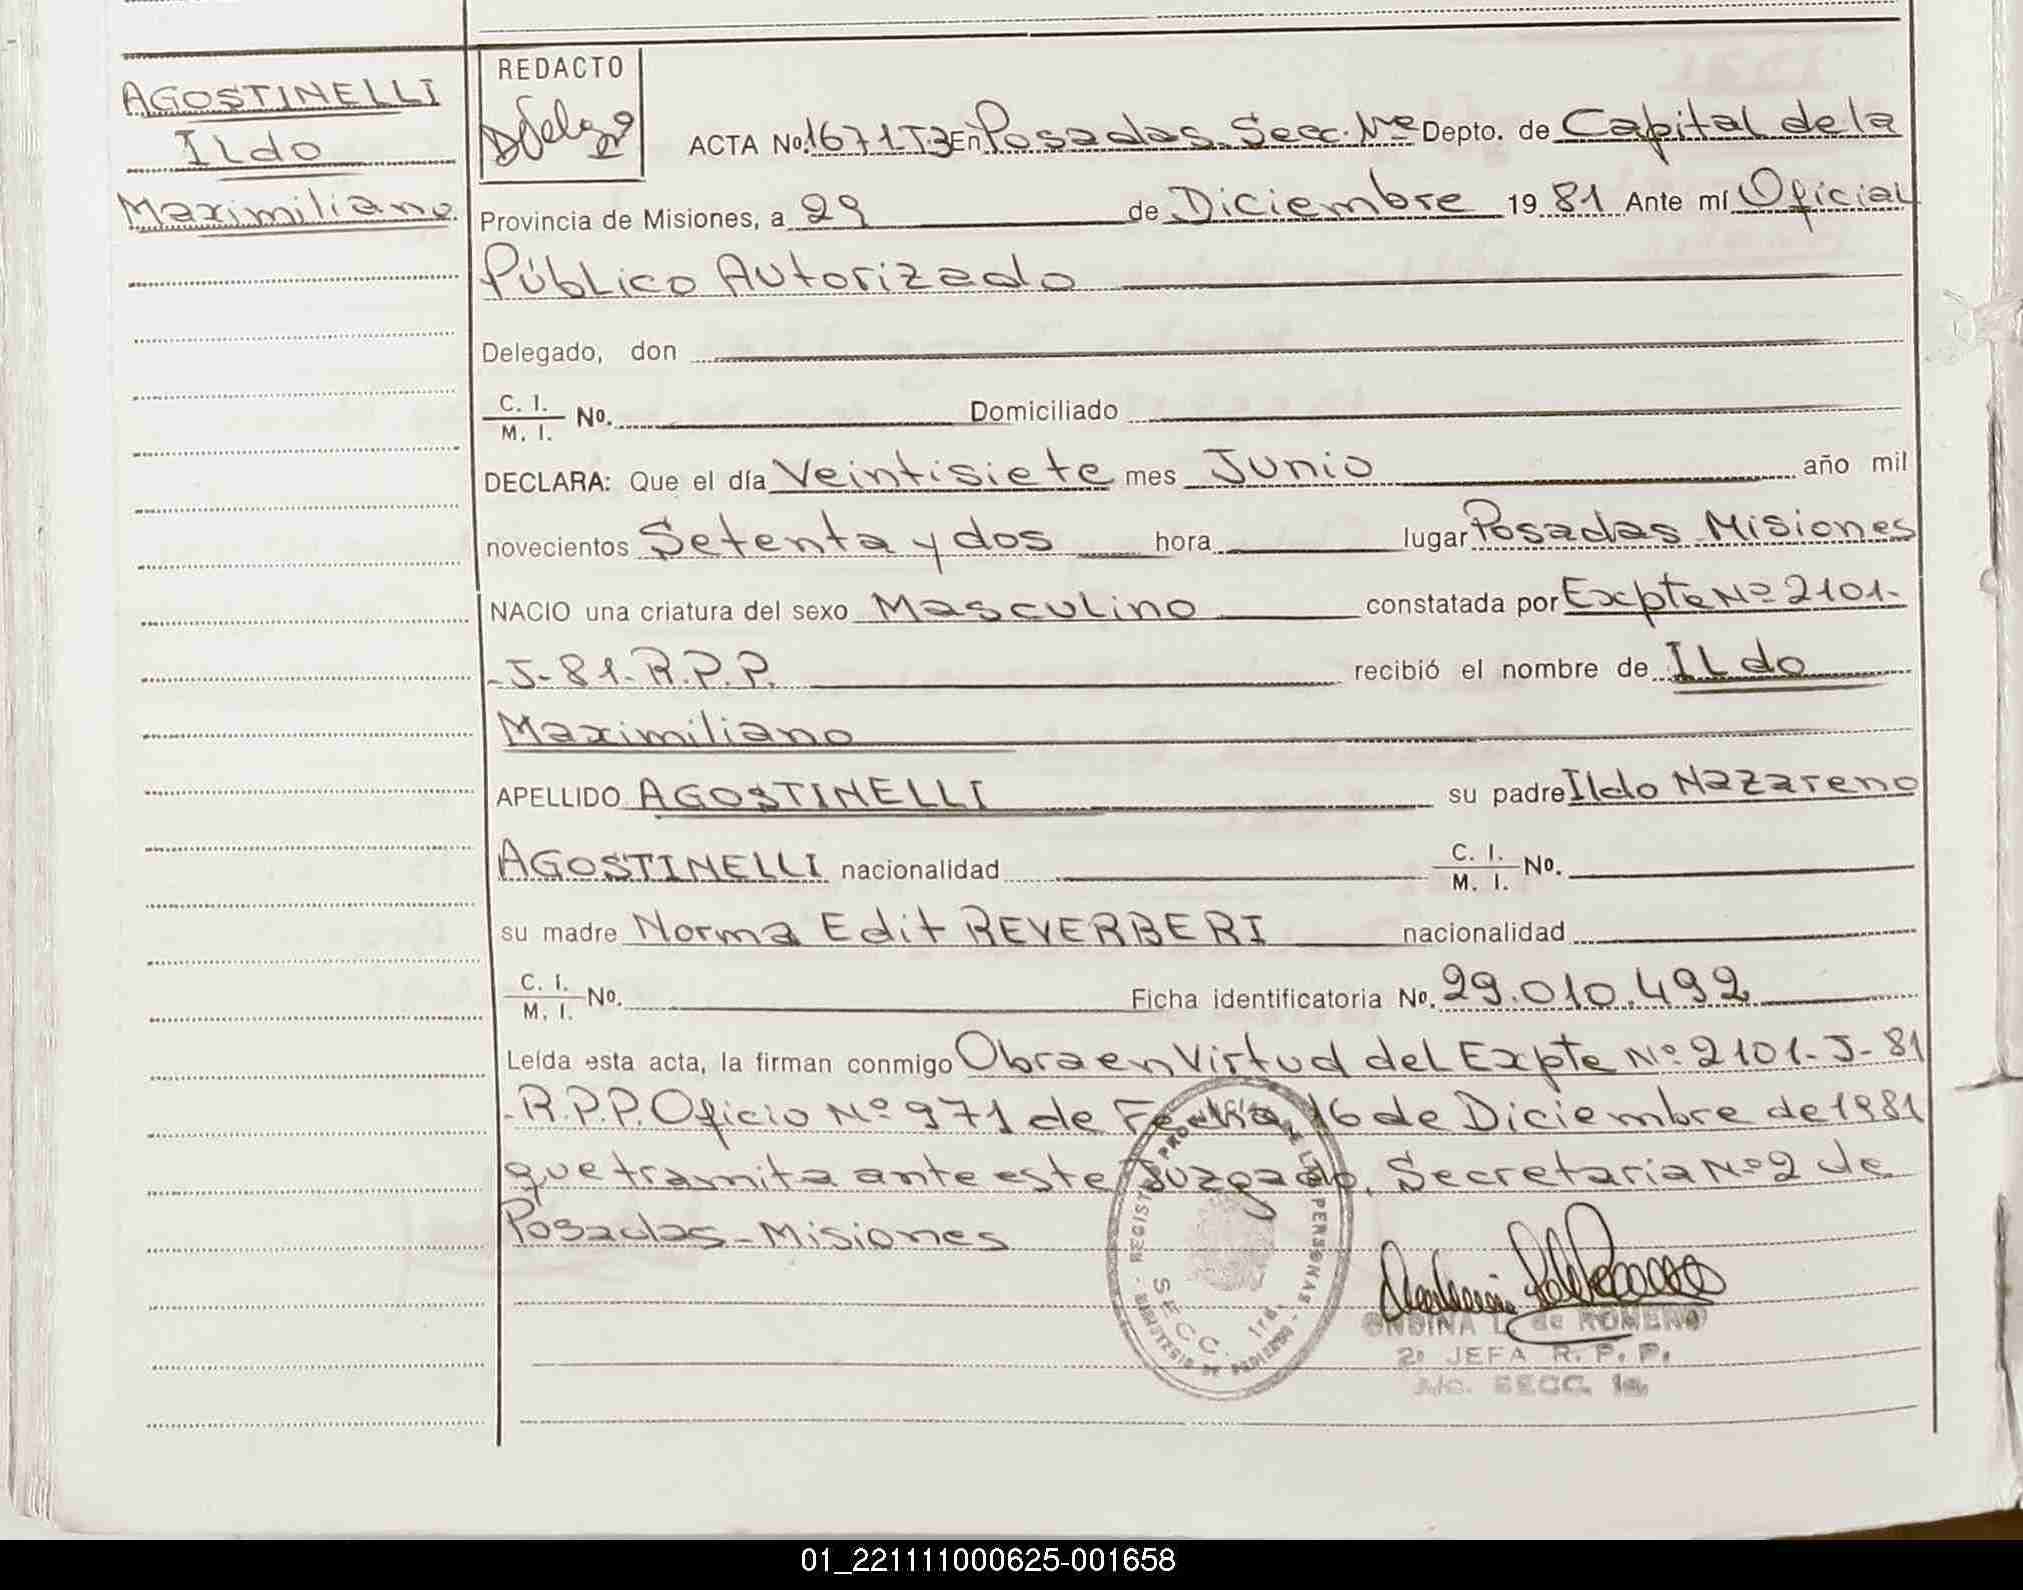 AGOSTINELLI
ILdo
Maximiliano.
REDACTO
ACTA No. 1671 T.3 En Posadas. Secc. 1ra Depto. de Capital de la
Provincia de Misiones, a 29 de Diciembre 19 81 Ante mí Oficial
Público Autorizado
Delegado, don
C. I.
M. I. No. Domiciliado
DECLARA: Que el día Veintisiete mes Junio año mil
novecientos Setenta y dos hora lugar Posadas Misiones
NACIO una criatura del sexo Masculino constatada por Expte Nº 2101-
-J-81-R.P.P. recibió el nombre de ILdo
Maximiliano
APELLIDO AGOSTINELLI su padre Ildo Nazareno
AGOSTINELLI nacionalidad C. I.
M. I. No.
su madre Norma Edit REVERBERI nacionalidad
C. I.
M. I. No. Ficha identificatoria No. 29.010.492
Leída esta acta, la firman conmigo Obra en Virtud del Expte Nº 2101-J-81
-R.P.P. Oficio Nº 971 de Fecha, 16 de Diciembre de 1981
que tramita ante este Juzgado, Secretaria Nº 2 de
Posadas-Misiones
SECC. 1ra.
ONDINA L. de ROMERO
2º JEFA R. P. P.
SECC. 1a.
01_221111000625-001658